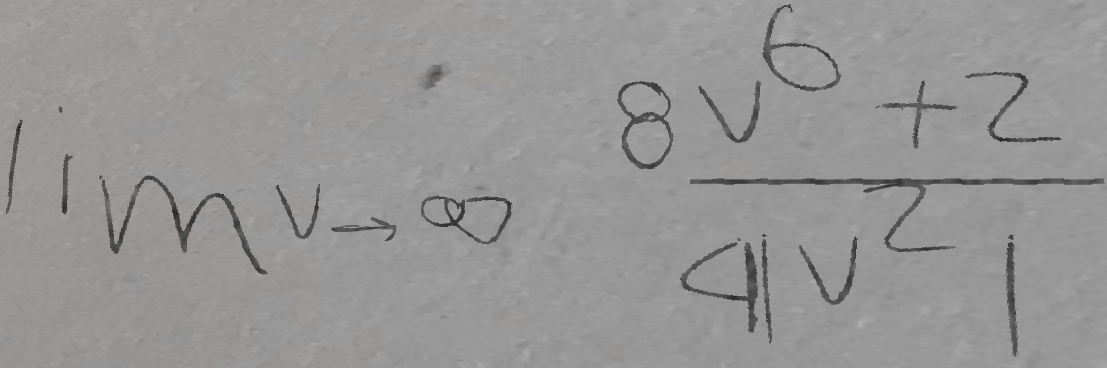 lim v→∞ \frac{8v^6+2}{4|v^2|}